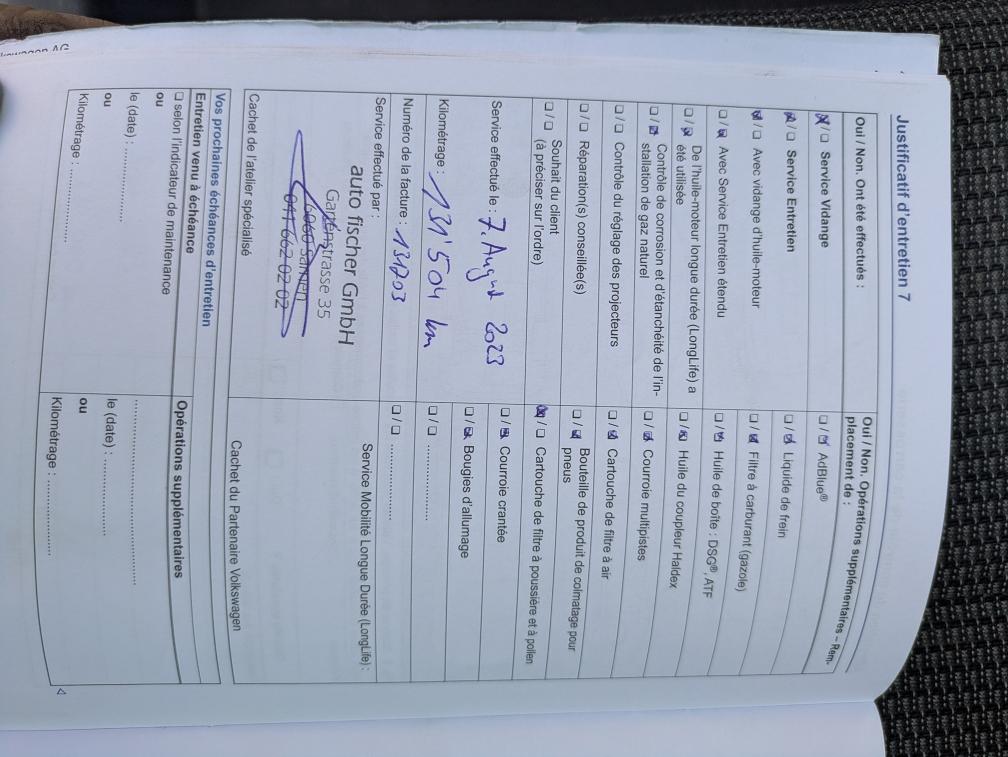 Justificatif d'entretien 7
Oui / Non. Ont été effectués :
☒/☐ Service Vidange
☒/☐ Service Entretien
☒/☐ Avec vidange d'huile-moteur
☐/☒ Avec Service Entretien étendu
☐/☒ De l'huile-moteur longue durée (LongLife) a
été utilisée
☐/☒ Contrôle de corrosion et d'étanchéité de l'in-
stallation de gaz naturel
☐/☐ Contrôle du réglage des projecteurs
☐/☐ Réparation(s) conseillée(s)
☐/☐ Souhait du client
(à préciser sur l'ordre)
Service effectué le : 7. August 2023
Kilométrage : 131'504 km
Numéro de la facture : 131203
Service effectué par :
auto fischer GmbH
Gartenstrasse 35
6060 Sarnen
041 662 02 02
Cachet de l'atelier spécialisé
Oui / Non. Opérations supplémentaires – Rem-
placement de :
☐/☒ AdBlue®
☐/☒ Liquide de frein
☐/☒ Filtre à carburant (gazole)
☐/☒ Huile de boîte : DSG®, ATF
☐/☒ Huile du coupleur Haldex
☐/☒ Courroie multipistes
☐/☒ Cartouche de filtre à air
☐/☒ Bouteille de produit de colmatage pour
pneus
☒/☐ Cartouche de filtre à poussière et à pollen
☐/☒ Courroie crantée
☐/☒ Bougies d'allumage
☐/☐ ....................
☐/☐ ....................
Service Mobilité Longue Durée (LongLife) :
Cachet du Partenaire Volkswagen
Vos prochaines échéances d'entretien
Entretien venu à échéance
☐ selon l'indicateur de maintenance
ou
le (date) : ....................
ou
Kilométrage : ....................
Opérations supplémentaires
........................................
le (date) : ....................
ou
Kilométrage : ....................